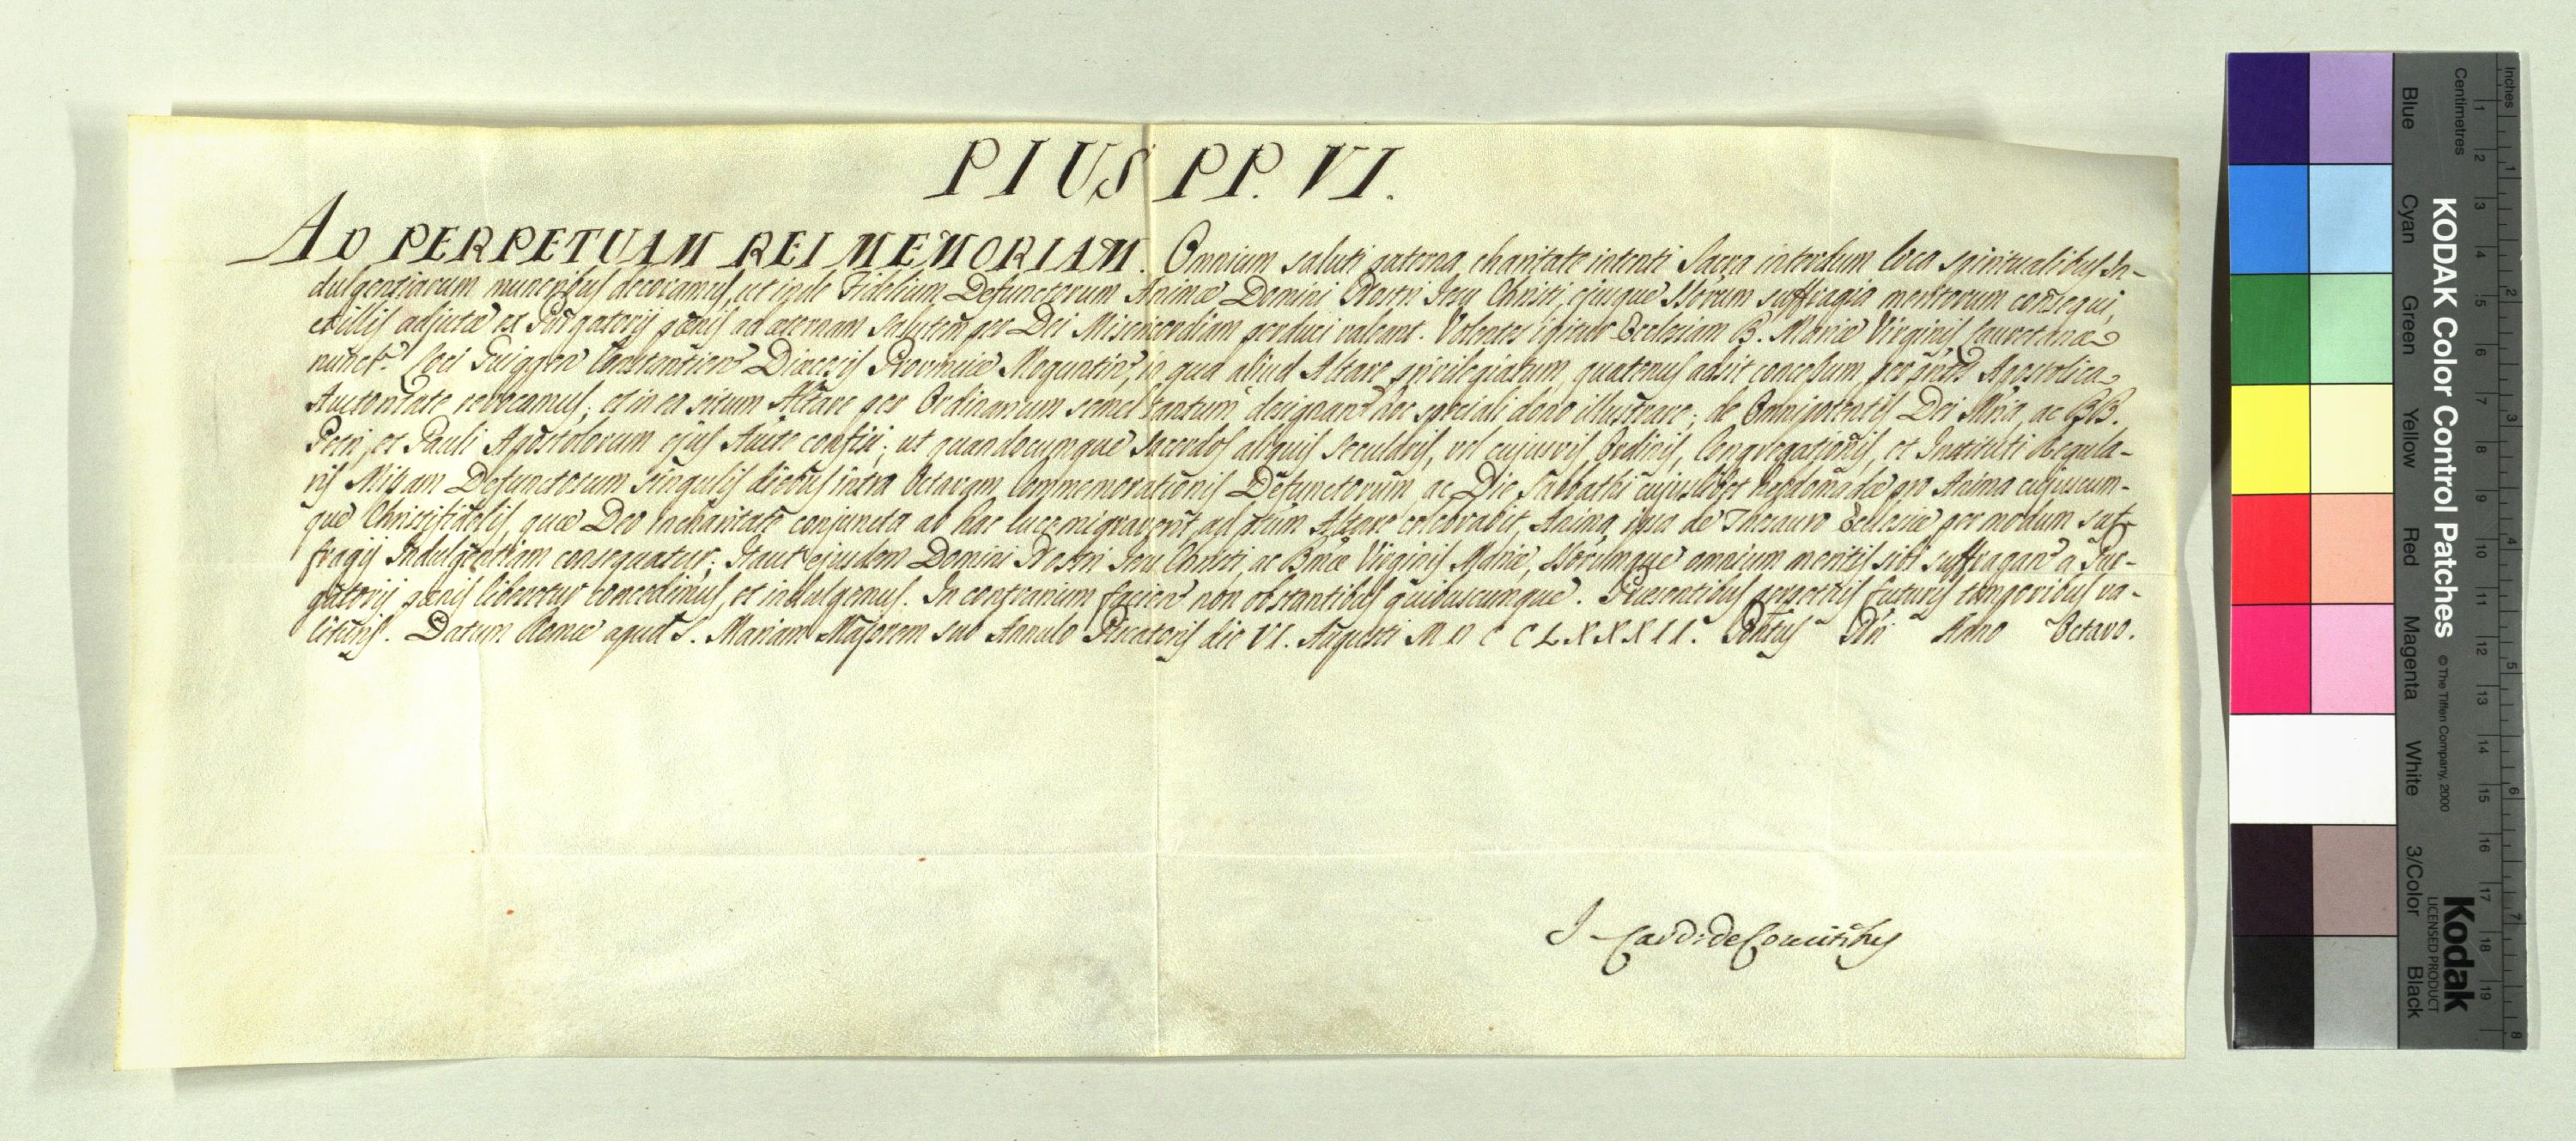 PIUS PP. VI.
AD PERPETUAM REI MEMORIAM. Omnium saluti paterna charitate intenti Sacra interdum loca spiritualibus In-
dulgentiarum muneribus decoramus, ut inde Fidelium Defunctorum Animæ Domini Nostri Jesu Christi, ejusque Storum suffragia meritorum consequi,
et illis adjutæ ex Purgatorij pœnis ad æternam salutem per Dei Misericordiam perduci valeant. Volentes igitur Ecclesiam B. Mariæ Virginis Lauretanæ
nuncte loci Constantien Diœcesis Provinciæ Moguntin, in qua aliud Altare privilegiatum quatenus adsit concessum per pntes Apostolica
Auctoritate revocamus, et in ea situm Altare per Ordinarium semel tantum designand hoc speciali dono illustrare; de Omnipotentis Dei Mria, ac BB.
Petri, et Pauli Apostolorum ejus Aucte confisi; ut quandocumque Sacerdos aliquis Secularis, vel cujusvis Ordinis, Congregationis, et Instituti Regula-
ris Missam Defunctorum singulis diebus intra Octavam Commemorationis Defunctorum ac Die Sabbathi cujuslibet hebdomadæ pro Anima cujuscum-
que Christifidelis, quæ Deo in charitate conjuncta ab hac luce migraverit ad Altare celebrabit, Anima ipsa de Thesauro Ecclesiæ per modum suf-
fragij Indulgentiam consequatur; Itaut ejusdem Domini Nostri Jesu Christi, ac Bmæ Virginis Mariæ, Storumque omnium meritis sibi suffragan a Pur-
gatorij pœnis liberetur concedimus, et indulgemus. In contrarium facien non obstantibus quibuscumque. Præsentibus perpetuis futuris temporibus va-
lituris. Datum Romæ apud S. Mariam Majorem sub Annulo Piscatoris die VI. Augusti MDCCLXXXII. Pontus Nri Anno Octavo.
J Card: de Comitibus
KODAK Color Control Patches
© The Tiffen Company, 2000
Kodak
LICENSED PRODUCT
Inches 1 2 3 4 5 6 7 8
Centimetres 1 2 3 4 5 6 7 8 9 10 11 12 13 14 15 16 17 18 19
Blue Cyan Green Yellow Red Magenta White 3/Color Black